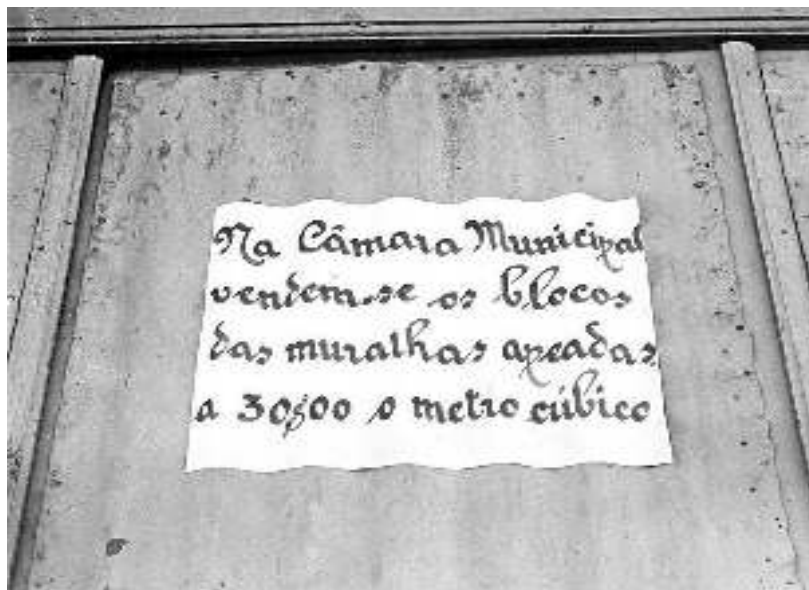 Na Câmara Municipal
vendem-se os blocos
das muralhas apeadas
a 30$00 o metro cúbico